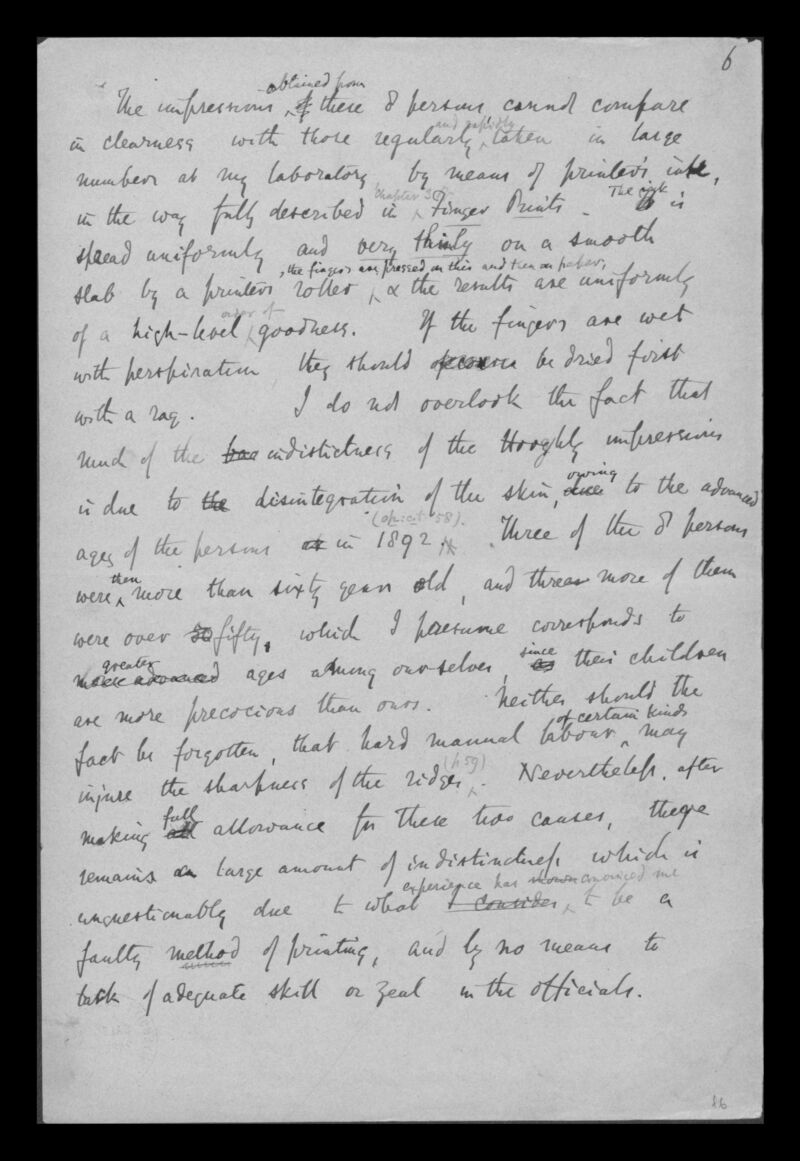 6
obtained from
The impressions of these 8 persons cannot compare
and rapidly
in clearness with those regularly taken in large
numbers at my laboratory by means of printer's ink,
Chapter 3
The ink
in the way fully described in Finger Prints. is
spread uniformly and very thinly on a smooth
, the fingers are pressed on this and then on paper,
slab by a printer's roller & the results are uniformly
order of
of a high-level goodness. If the fingers are wet
with perspiration they should of course be dried first
with a rag. I do not overlook the fact that
much of the indistictness of the Hooghly impressions
owing
is due to the disintegration of the skin, due to the advanced
(op. cit 58).
ages of the persons in 1892. Three of the 8 persons
then
were more than sixty years old, and three more of them
were over 50 fifty, which I presume corresponds to
greater
since
more advanced ages among ourselves, as their children
are more precocious than ours. Neither should the
of certain kinds
fact be forgotten, that hard manual labour, may
(p 59)
injure the sharpness of the ridges. Nevertheless, after
full
making all allowance for these two causes, there
remains a large amount of indistinctness which is
experience has shown convinced me
unquestionably due to what I consider to be a
faulty method of printing, and by no means to
lack of adequate skill or zeal in the officials.
86